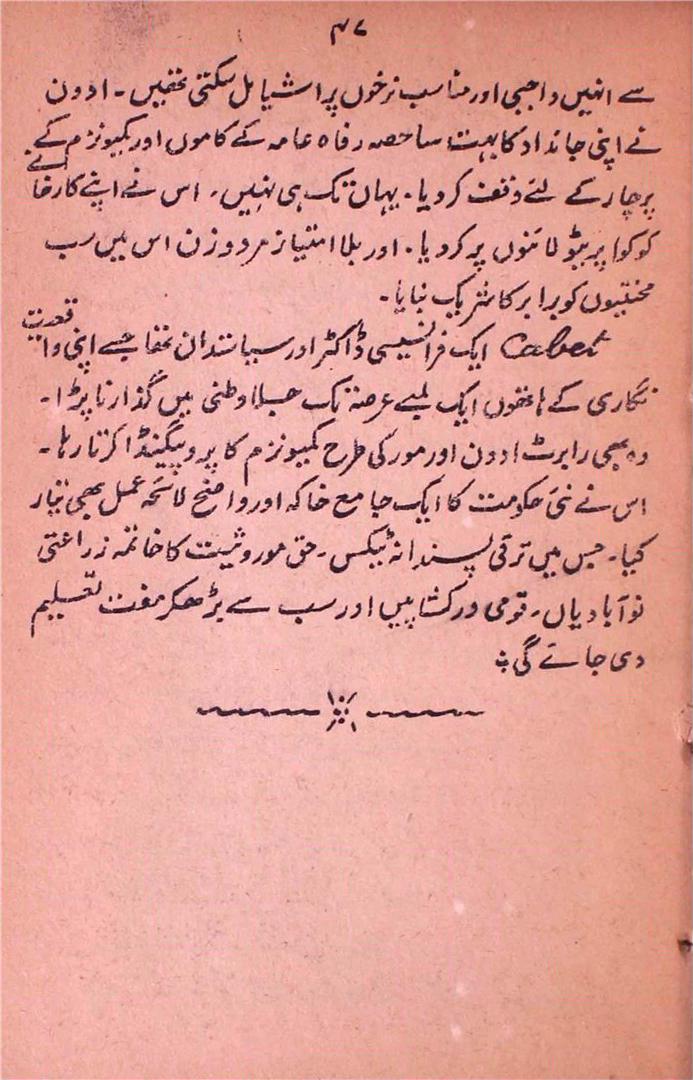 ۴۷
سے انہیں واجبی اور مناسب نرخوں پر اشیا مل سکتی تھیں۔ اوون
نے اپنی جائداد کا بہت سا حصہ رفاہ عامہ کے کاموں اور کمیونزم کے
پرچار کے لئے وقف کر دیا۔ یہاں تک ہی نہیں۔ اس نے اپنے کارخانے
کو کواپریٹو لائنوں پر کر دیا۔ اور بلا امتیاز مرد و زن اس میں سب
محنتیوں کو برابر کا شریک بنایا۔
Cabet ایک فرانسیسی ڈاکٹر اور سیاستدان تھا جسے اپنی واقعیت
نگاری کے ہاتھوں ایک لمبے عرصہ تک جلاوطنی میں گذارنا پڑا۔
وہ بھی رابرٹ اوون اور مور کی طرح کمیونزم کا پروپیگینڈا کرتا رہا۔
اس نے نئی حکومت کا ایک جامع خاکہ اور واضح لائحہ عمل بھی تیار
کیا۔ جس میں ترقی پسندانہ ٹیکس۔ حق موروثیت کا خاتمہ زراعتی
نوآبادیاں۔ قومی ورکشاپیں اور سب سے بڑھکر مفت تعلیم
دی جائے گی؞